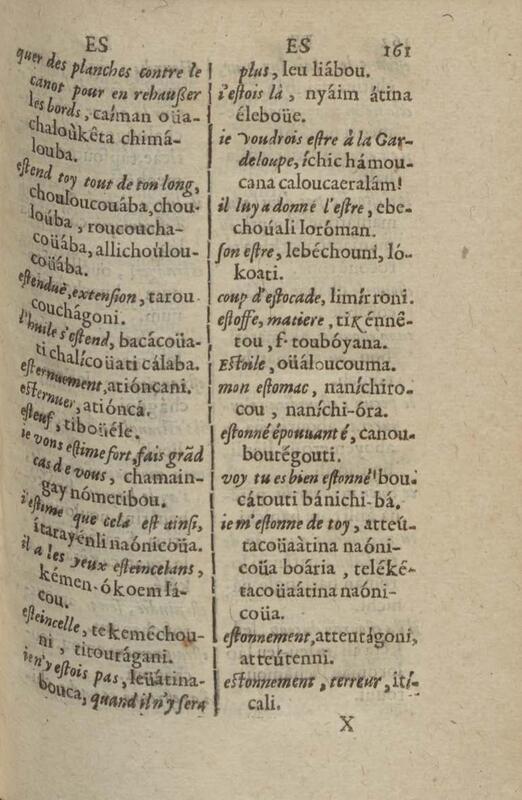 ES
quer des planches contre le
canot pour en rehauſſer
les bords, caíman oüa-
chaloùkêta chimá-
louba.
eſtend toy tout de ton long,
chouloucouába, chou-
loúba, roucoucha-
coüába, allichoúlou-
coüába.
eſtenduë, extenſion, tarou
couchágoni.
l'huile s'eſtend, bacácoüa-
ti chalícoüati cálaba.
eſternuement, atiónçani.
eſternuer, atiónca.
eſteuf, tiboüéle.
ie vous eſtime fort, fais grãd
cas de vous, chamain-
gay nómetibou.
i'eſtime que cela eſt ainſi,
ítarayénli naónicoüa.
il a les yeux eſteincelans,
kémen-ókoem lá-
cou.
eſteincelle, tekeméchou-
ni, titourágani.
ie n'y eſtois pas, leüátina-
bouca, quand il n'y ſera
ES 161
plus, leu liábou.
i'eſtois là, nyáim átina
éleboüe.
ie voudrois eſtre à la Gar-
deloupe, íchic hámou-
cana caloucaeralám!
il luy a donné l'eſtre, ebe-
choúali loróman.
ſon eſtre, lebéchouni, ló-
koati.
coup d'eſtocade, limír roni.
eſtoffe, matiere, tiKénnê-
tou, f. toubóyana.
EStoile, oüáloucouma.
mon eſtomac, naníchiro-
cou, naníchi-óra.
eſtonné épouuanté, canou-
boutégouti.
voy tu es bien eſtonné! bou-
cátouti bánichi-bá.
ie m'eſtonne de toy, atteú-
tacoüaàtina naóni-
coüa boária, teléké-
tacoüaátina naóni-
coüa.
eſtonnement, atteutágoni,
atteútenni.
eſtonnement, terreur, ití-
cali.
X